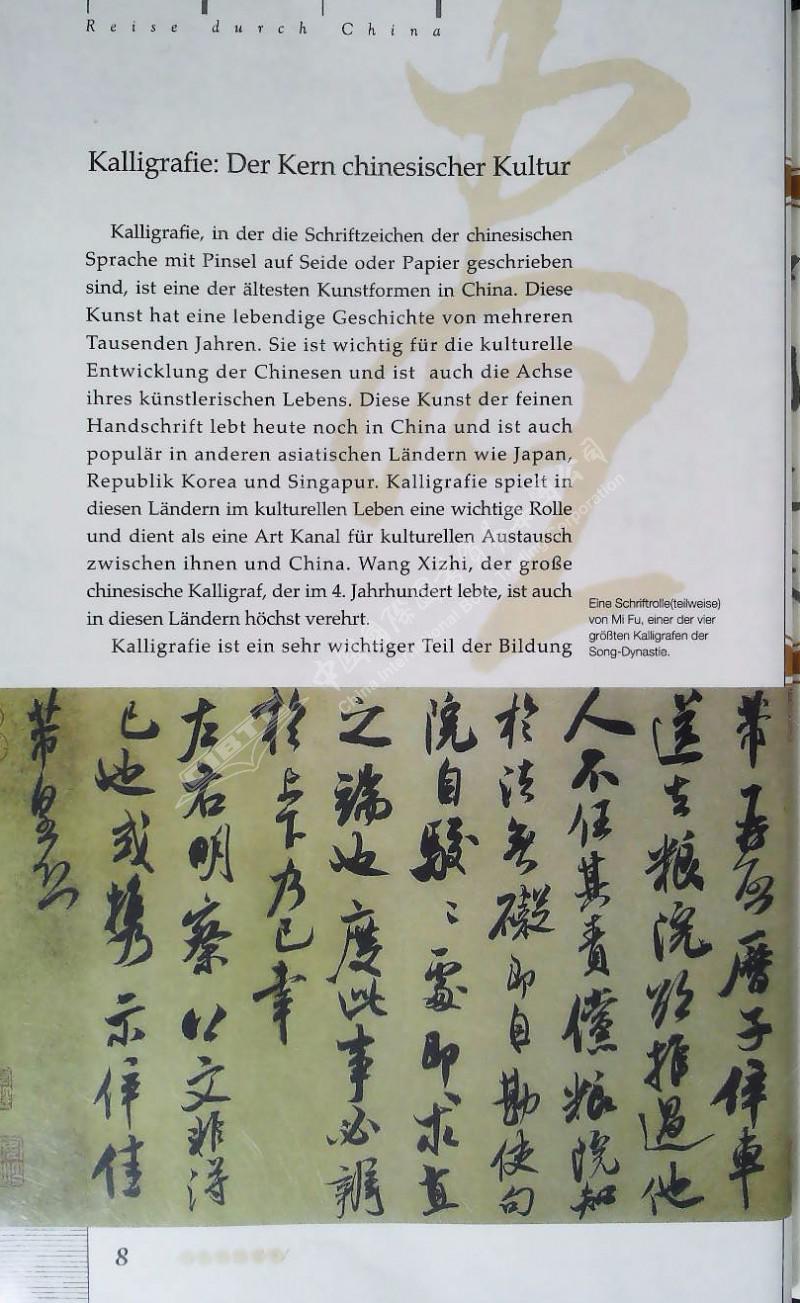 Reise durch China
Kalligrafie: Der Kern chinesischer Kultur
Kalligrafie, in der die Schriftzeichen der chinesischen
Sprache mit Pinsel auf Seide oder Papier geschrieben
sind, ist eine der ältesten Kunstformen in China. Diese
Kunst hat eine lebendige Geschichte von mehreren
Tausenden Jahren. Sie ist wichtig für die kulturelle
Entwicklung der Chinesen und ist auch die Achse
ihres künstlerischen Lebens. Diese Kunst der feinen
Handschrift lebt heute noch in China und ist auch
populär in anderen asiatischen Ländern wie Japan,
Republik Korea und Singapur. Kalligrafie spielt in
diesen Ländern im kulturellen Leben eine wichtige Rolle
und dient als eine Art Kanal für kulturellen Austausch
zwischen ihnen und China. Wang Xizhi, der große
chinesische Kalligraf, der im 4. Jahrhundert lebte, ist auch
in diesen Ländern höchst verehrt.
Kalligrafie ist ein sehr wichtiger Teil der Bildung
Eine Schriftrolle(teilweise)
von Mi Fu, einer der vier
größten Kalligrafen der
Song-Dynastie.
中国国际图书贸易集团公司
China International Book Trading Corporation
CIBTC
送去粮院欲推过他
人不任其责傥粮院知
於法无碍即自勘使句
院自驳〻处即求直
之端也度此事必辨
於上下乃已幸
左右明察以文非得
已也或携示倅佳
芾皇恐
8